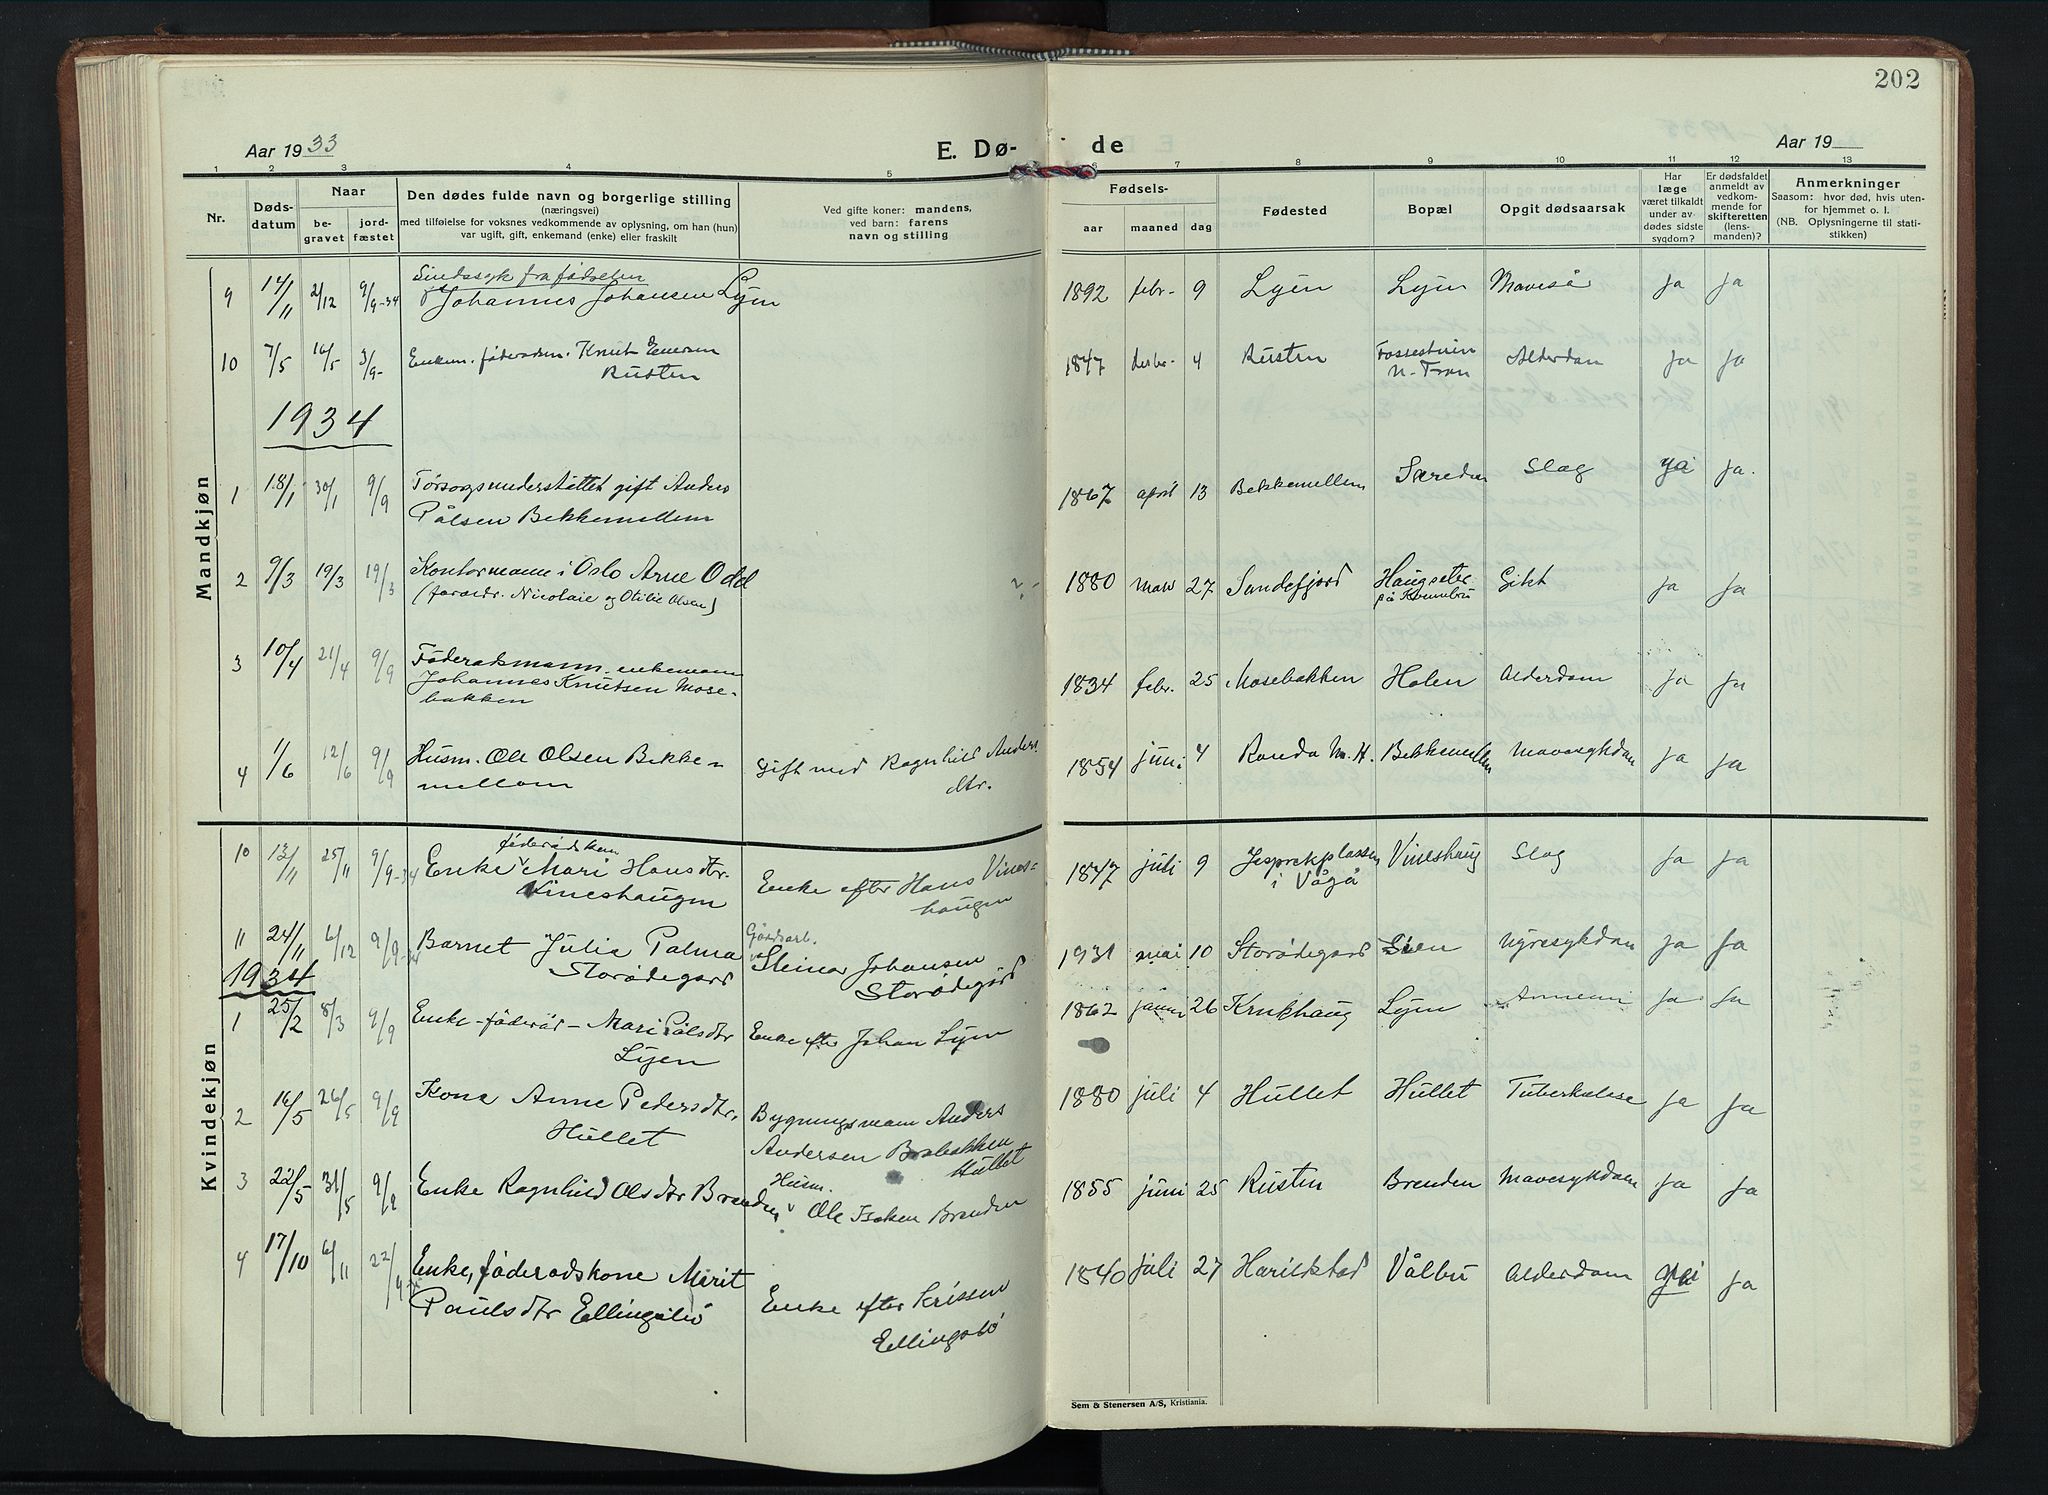 202
Aar 1933
E. Dø-
de
Aar 19
1 2 3 4 5 6 7 8 9 10 11 12 13
Nr.
Døds-
datum
Naar
be-
gravet
jord-
fæstet
Den dødes fulde navn og borgerlige stilling
(næringsvei)
med tilføielse for voksnes vedkommende av oplysning, om han (hun)
var ugift, gift, enkemand (enke) eller fraskilt
Ved gifte koner: mandens,
ved barn: farens
navn og stilling
Fødsels-
aar maaned dag
Fødested
Bopæl
Opgit dødsaarsak
Har
læge
været tilkaldt
under av-
dødes sidste
sygdom?
Er dødsfaldet
anmeldt av
vedkom-
mende for
skifteretten
(lens-
manden)?
Anmerkninger
Saasom: hvor død, hvis uten-
for hjemmet o. l.
(NB. Oplysningerne til stati-
stikken)
Mandkjøn
Sindssyk fra fødselen
9 14/11 2/12 9/9-34 Johannes Johansen Lyen 1892 febr. 9 Lyen Lyen Mavesår Ja Ja
10 7/5 16/5 3/9- Enkem. føderadsm. Knut Enersen
Rusten
1847 desbr. 4 Rusten
N. Fron
Alderdom Ja Ja
1934
1 18/1 30/1 9/9 Forsorgsunderstøttet gift Anders
Pålsen Bekkemellem
1867 april 13 Bekkemellem Slag Ja Ja.
2 9/3 19/3 19/3 Kontormann i Oslo Arne Odd
(foreldr. Nicolaie og Otilie Olsen)
?
1880 mars 27 Sandefjord Haugseter
på Kvennbru
Gikt Ja Ja
3 10/4 21/4 9/9 Føderadsmann, enkemann
Johannes Knutsen Mose-
bakken
1834 febr. 25 Mosebakken Holen Alderdom Ja Ja
4 1/6 12/6 9/9 Husm. Ole Olsen Bekke-
mellom
Gift med Ragnhild Anders
dtr.
1854 juni 4 Randa Bekkemellem Mavesykdom Ja Ja
Kvindekjøn
føderådskone
10 13/11 25/11 9/9-34 Enke Mari Hansdtr.
Vineshaugen
Enke efter Hans Vines-
haugen
1847 juli 9 Jesprekplassen
i Vågå
Vineshaug Slag Ja Ja
11 24/11 6/12 9/9-34 Barnet Julia Palma
Storødegard
Gårdsarb.
Steinar Johansen
Storødegård
1931 mai 10 Storødegard Nyresykdom Ja Ja
1934
1 25/2 8/3 9/9 Enke føderåd - Mari Pålsdtr
Lyen
Enke efter Johan Lyen
1862 26 Krukhaug Lyen Ja Ja
2 16/5 26/5 9/9 Kona Anne Pedersdtr.
Hullet
Bygningsmann Anders
Andersen Brobakken
Hullet
1880 juli 4 Hullet Hullet Tuberkulose Ja Ja
3 22/5 31/5 9/9 Enke Ragnhild Olsdtr Brenden
Husm.
Ole Isaksen Brenden
1855 juni 25 Rusten Brenden Mavesykdom Ja Ja
4 17/10 6/11 22/9 Enke, føderadskone Marit
Paulsdtr Ellingsbø
Enke efter
Ellingsbø
1840 juli 27 Harildstad Vålbu Alderdom Ja
Sem & Stenersen A/S, Kristiania.